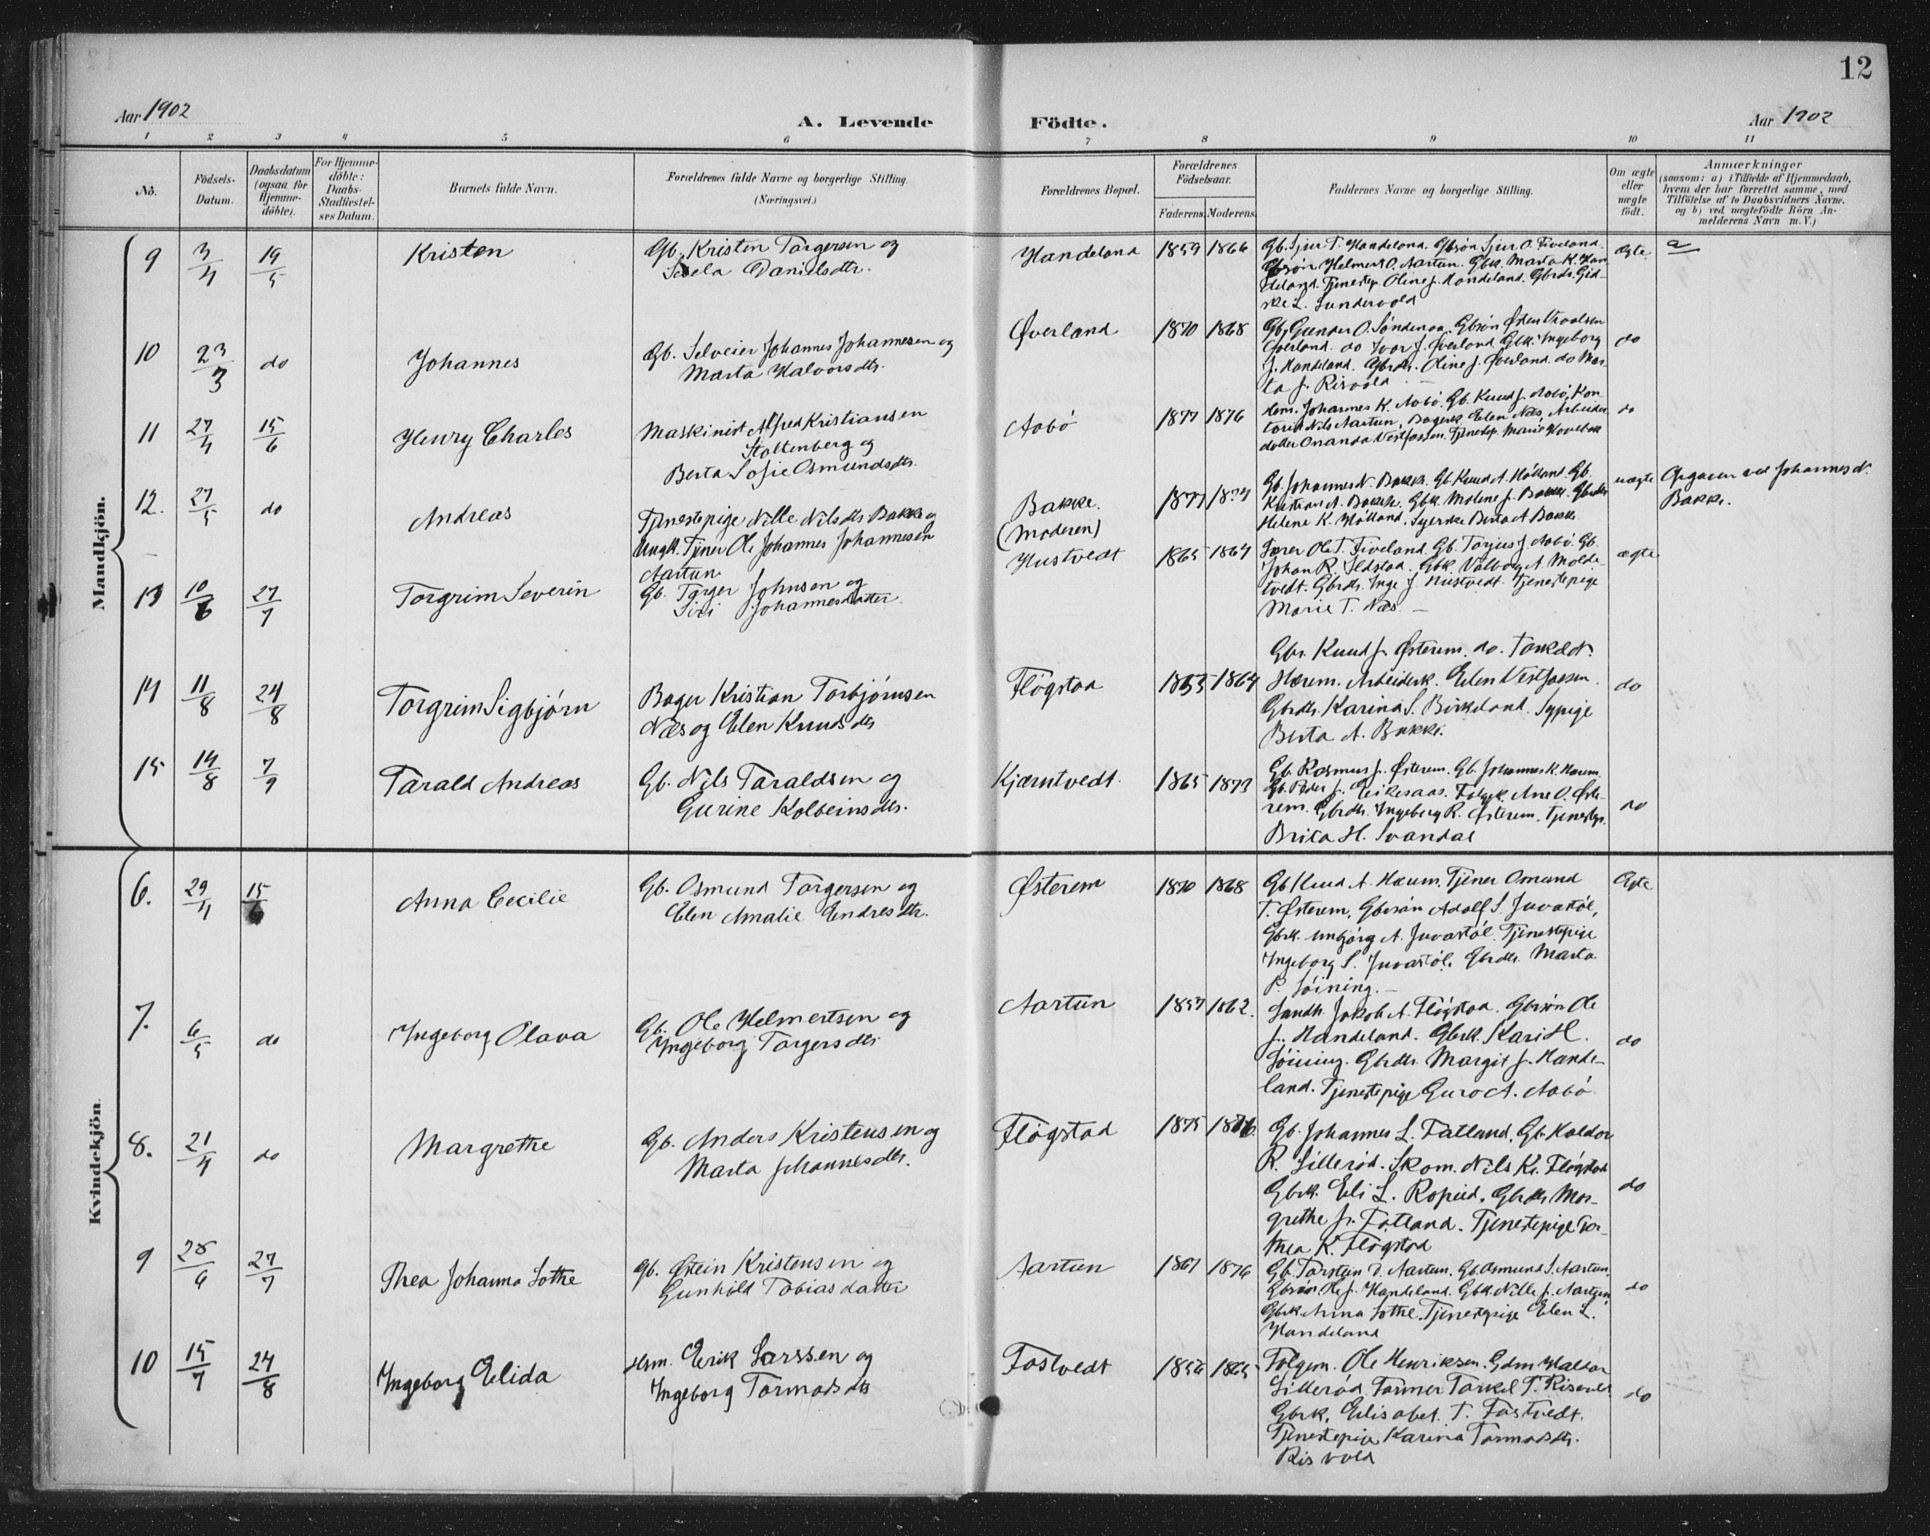 12
Aar 1902
A. Levende Födte.
Aar 1902
1 2 3 4 5 6 7 8 9 10 11
No.
Födsels-Datum.
Daabsdatum (ogsaa for Hjemme-döbte).
For Hjemme-döbte: Daabs-Stadfæstel-ses Datum.
Barnets fulde Navn.
Forældrenes fulde Navne og borgerlige Stilling.
(Næringsvei.)
Forældrenes Bopæl.
Forældrenes Födselsaar.
Faderens. Moderens.
Faddernes Navne og borgerlige Stilling.
Om ægte eller uægte födt.
Anmærkninger
(saasom: a) i Tilfælde af Hjemmedaab,
hvem der har forrettet samme, med
Tilföielse af to Daabsvidners Navne,
og b) ved uægtefödte Börn An-
melderens Navn m. V.)
Mandkjön.
9 3/4 19/5 Kristen
Gb. Kristen Torgersen og
Danielsdtr.
Handeland 1859 1866
Gb. Sjur T. Handeland. Gbsøn Sjur O. Fiveland.
Gbsøn Helmer O. Aartun. Gbk. Marta K. Han-
deland. Tjenestep. Oline J. Handeland. Gbrdr. Gid-
ske L. Sundervold
ægte
10 23/3 do Johannes
Gb. Selveier Johannes Johannesen og
Marta Halvorsdtr.
Øverland 1870 1868
Gb. Gunder O. Søndenaa. Gbsøn Østen
Øverland. do Ivar J. Øverland. Gbk. Ingeborg
J. Handeland. Gbrdr. Oline J. Øverland. do Mar-
ta J. Risvold. —
do
11 27/4 15/6 Henry Charles
Maskinist Alfred Kristiansen
Stoltenberg og
Berta Sofie Osmundsdtr.
Aabø 1877 1876
Johannes K. Aabø. Gb. Knud J. Aabø, Kon-
torist Nils Aartun, Bagersk. Elen Næs, Arbeider
datter Ananda Vestfossen. Tjenestep. Marie
do
12. 27/5 do Andreas
Tjenestepige Nille Nilsdtr Bakke og
Ungk. Tjner Ole Johannes Johannesen
Aartun
Bakke.
(Moderen)
1877
Gb. Johannes N. Bakke. Gb. Knud A. Hølland. Gb.
Kristian A. Bakke. Gbk. Malene J. Bakke. Gbrdtr
Helene K. Hølland. Syerske Berta A Bakke
uægte
Opgaven ved Johannes N.
Bakke.
13 10/6 27/7 Torgrim Severin
Gb. Torger Johnsen og
Siri Johannesdatter
Hustvedt 1865 1864
Lærer Ole T. Fiveland. Gb. Torjus J. Aabø. Gb.
Johan R. Ilstad. Gbk. Valborg A. Molde-
tvedt. Gbrdtr. Inge J. Hustvedt. Tjenestepige
Marie T. Næs. —
ægte
14 11/8 24/8 Torgrim Sigbjørn
Bager Kristian Torbjørnsen
Næs og Elen Knudsdtr
Fløgstad 1864
Gbr. Knud J. Østerem. do. Torkel N.
Hærem. Arbeidersk. Elen Vestfossen.
Gbrdtr. Karina S. Birkeland. Sypige
Berta A. Bakke.
do
15 14/8 7/9 Tarald Andreas
Gb. Nils Taraldsen og
Gurine Kolbeinsdtr.
Kjærntvedt. 1865 1873
Gb. Rasmus J. Østerem. Gb. Johannes K. Hærem.
Gb. Peder J. Eikesaas. Folgek. Ane O. Øste-
rem. Gbrdtr. Ingeborg R. Østerem. Tjenestep.
Brita H. Svandal
do
Kvindekjön.
6. 29/4 15/6 Anna Cecilie
Gb. Osmund Torgersen og
Elen Amalie Endresdtr.
Østerem 1870 1868
Gb Knud A. Hærem. Tjener Omund
T. Østerem, Gbrsøn Adolf S. Juvastøl,
Gbrk. A. Juvastøl. Tjenestepige
Ingeborg S. Juvastøl. Gbrdtr. Marta
P. Søining. —
Ægte
7. 6/5 do Ingeborg Olava
Gb. Ole Helmertsen og
Ingeborg Torgersdtr.
Aartun 1857 1862.
Landh. Jakob A. Fløgstad. Gbrsøn Ole
J. Handeland. Gbrk. Kari H.
Søining. Gbrdtr. Margit J. Hande-
land. Tjenestepige Guro A. Aabø
do
8. 21/4 do Margrethe
Gb. Anders Kristensen og
Marta Johannesdtr.
Fløgstad 1875
Gb. Johannes L. Fatland. Gb. Haldor
R. Lillerød. Skom. Nils Kr. Fløgstad
Gbrk. Eli L. Ropeid. Gbrdtr. Mar-
grethe J. Fatland. Tjenestepige Tor-
thea K. Fløgstad
do
9 28/6 27/7 Thea Johanna Lothe
Gb. Østein Kristensen og
Gunhild Tobiasdatter
Aartun 1867 1876
Gb. Torsten T. Aartun. Gb. Osmund S. Aartun.
Gbrsøn Ole J. Handeland. Gbk. Nille J. Aartun
Gbrk Anna Lothe. Tjenestepige Elen L.
Handeland
do
10 15/7 24/8 Ingeborg Elida
Hsm. Eerik Larssen og
Ingeborg Tormodsdtr
Fostvedt 1856 1865
Folgem. Ole Henriksen. Gdm Haldor
Lillerød. Farmer Torkel T. Risvold
Gbrk. Elisabet T. Fostvedt.
Tjenestepige Karina Tormodsdtr.
Risvold
do